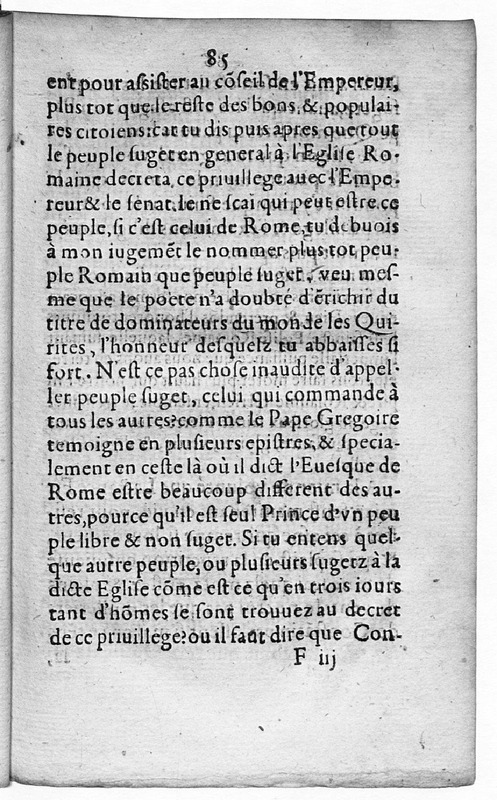 85
ent pour assister au cõseil de l'Empereur,
plus tot que le reste des bons, & populai-
res citoiens: car tu dis puis apres que tout
le peuple suget en general à l'Eglise Ro-
maine decreta, ce priuillege auec l'Empe-
reur & le senat. Ie ne scai qui peut estre ce
peuple, si c'est celui de Rome, tu debuois
à mon iugemẽt le nommer plus tot peu-
ple Romain que peuple suget, veu mes-
me que le poete n'a doubté d'ẽrichir du
titre de dominateurs du monde les Qui-
rites, l'honneur desquelz tu abbaisses si
fort. N'est ce pas chose inaudite d'appel-
ler peuple suget, celui qui commande à
tous les autres? comme le Pape Gregoire
temoigne en plusieurs epistres, & specia-
lement en ceste là où il dict l'Euesque de
Rome estre beaucoup different des au-
tres, pource qu'il est seul Prince d'vn peu
ple libre & non suget. Si tu entens quel-
que autre peuple, ou plusieurs sugetz à la
dicte Eglise cõme est ce qu'en trois iours
tant d'hõmes se sont trouuez au decret
de ce priuillege? ou il faut dire que Con-
F iij